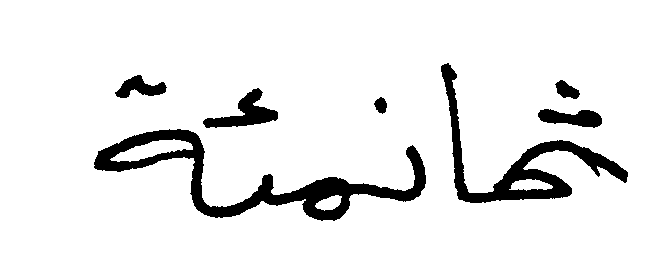 ثمانمئة